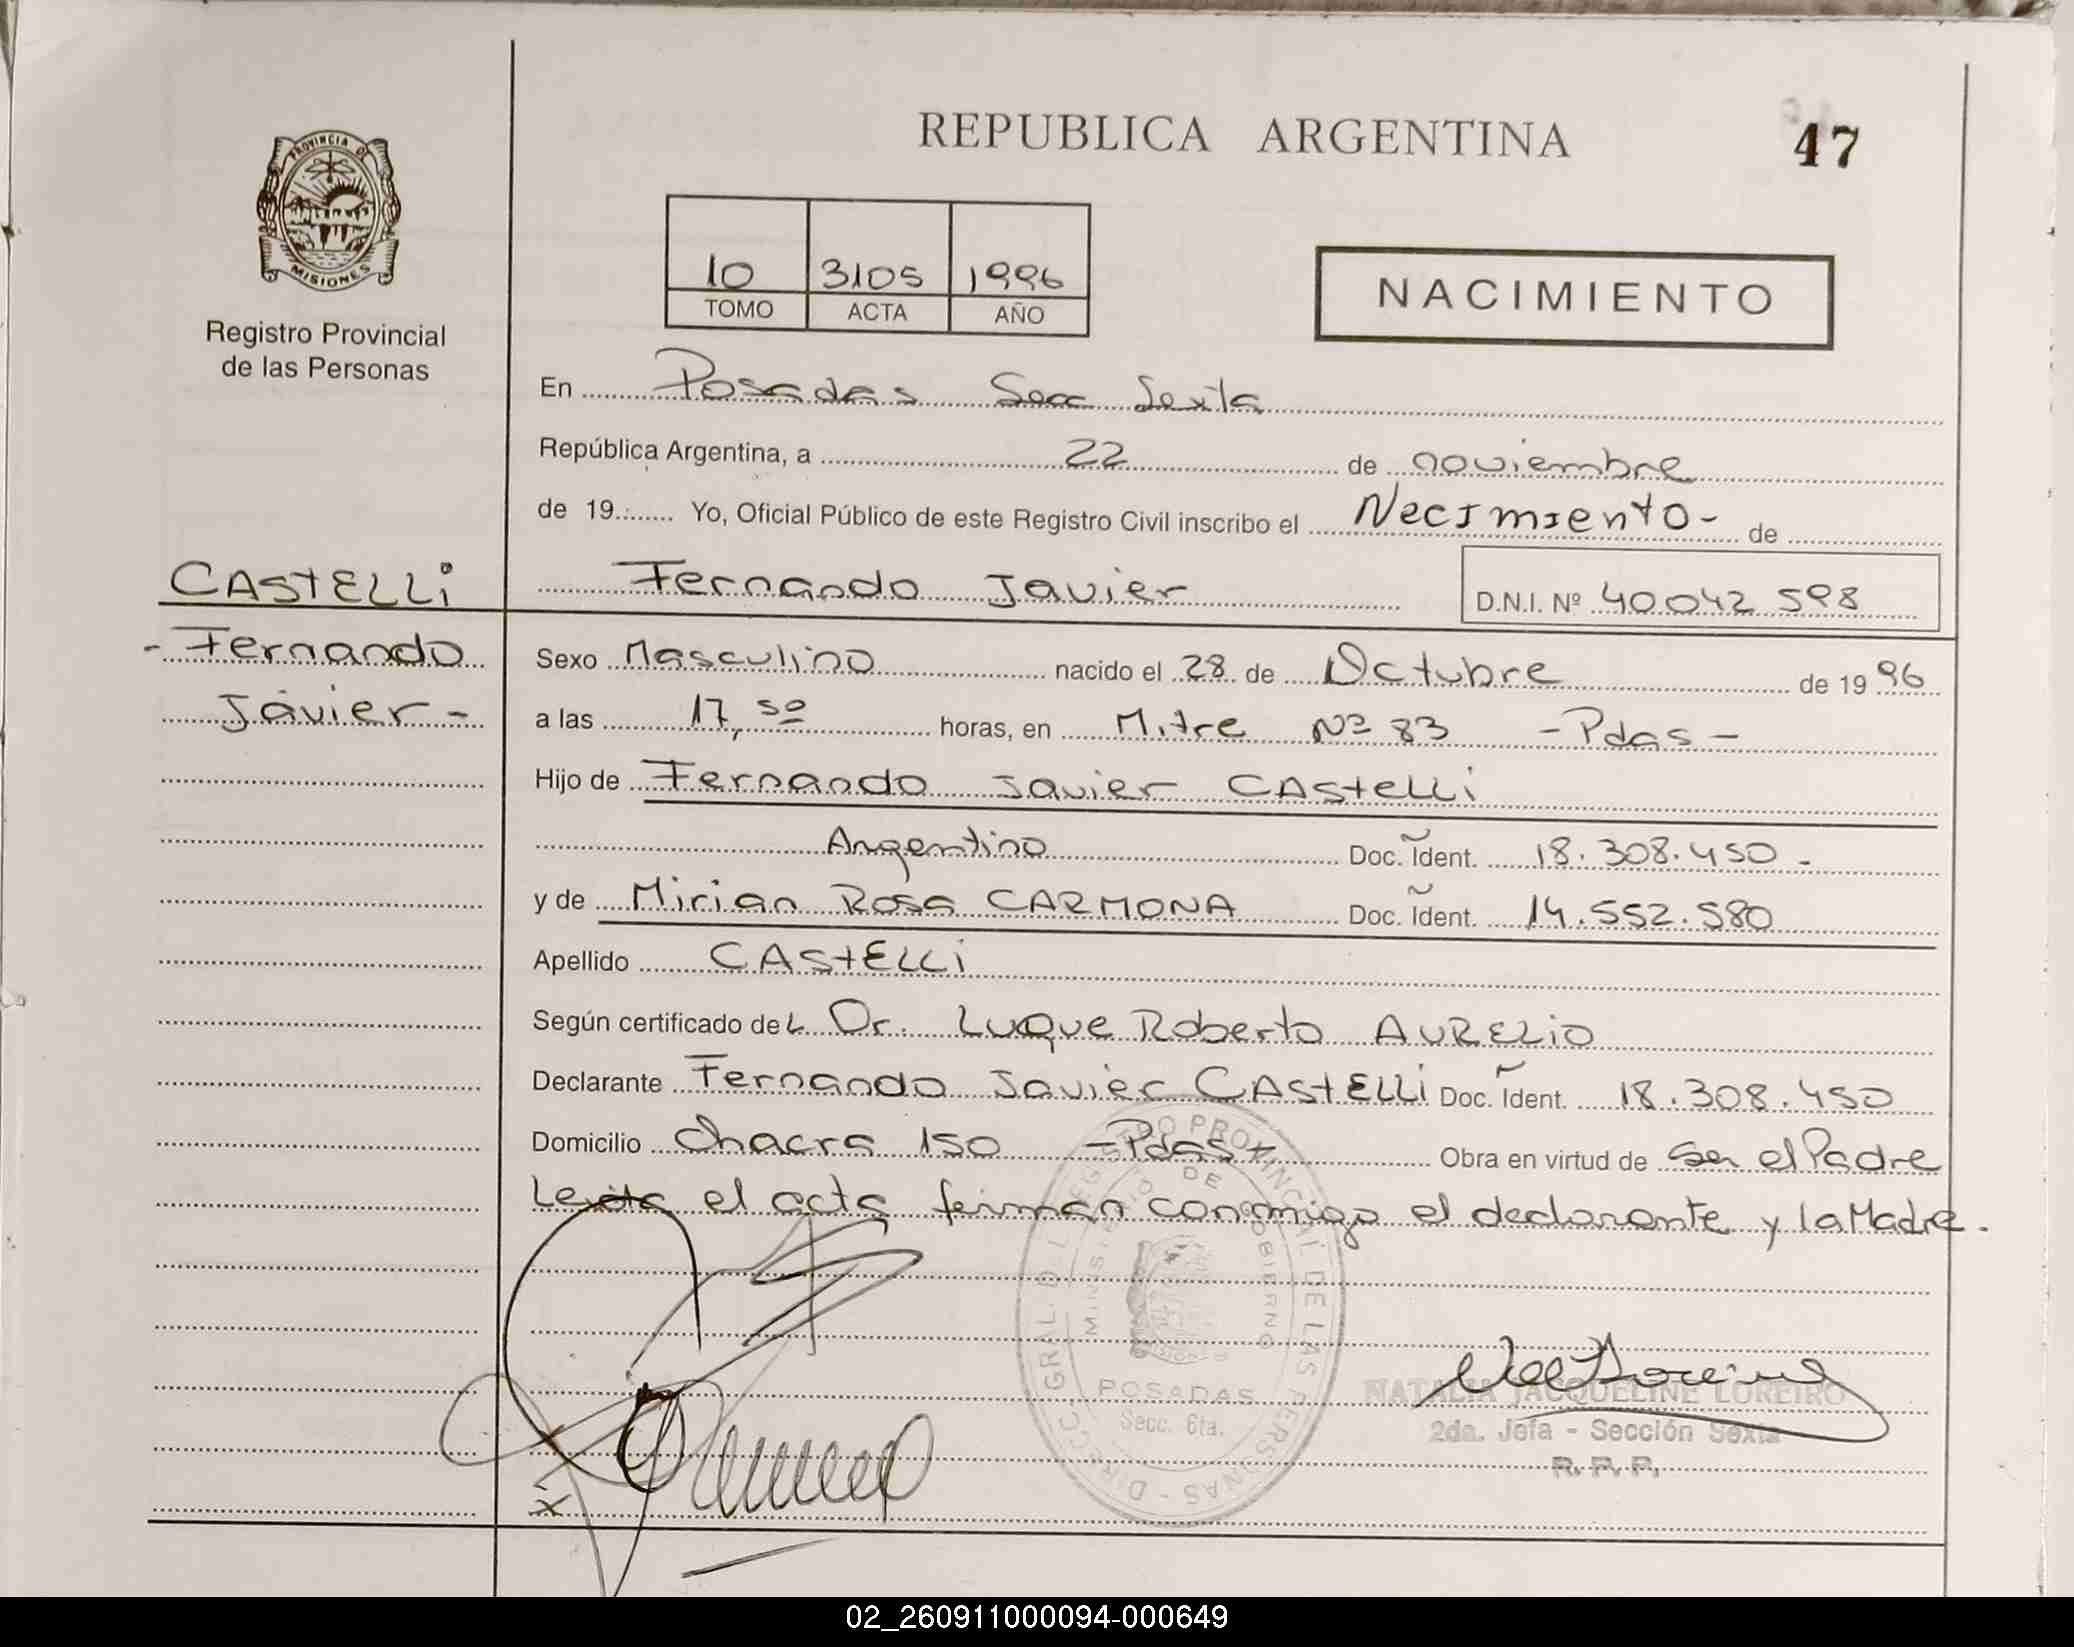 REPUBLICA ARGENTINA
47
PROVINCIA DE
MISIONES
Registro Provincial
de las Personas
10 3105 1996
TOMO ACTA AÑO
NACIMIENTO
En Posadas Secc Sexta
República Argentina, a 22 de noviembre
de 19 Yo, Oficial Público de este Registro Civil inscribo el Necimiento- de
CASTELLi
Fernando Javier D.N.I. Nº 40.042 598
- Fernando
Javier -
Sexo Masculino nacido el 28 de Octubre de 19 96
a las 17,50 horas, en Mitre Nº 83 - Pdas -
Hijo de Fernando Javier CAstelli
Argentino Doc. Ident. 18.308.450 -
y de Mirian Rosa CARMONA Doc. Ident. 14.552.580
Apellido CAStELLi
Según certificado del Dr. Luque Roberto AURELiO
Declarante Fernando Javier CAStELLi Doc. Ident. 18.308.450
Domicilio Chacra 150 - Pdas - Obra en virtud de Ser el Padre
Leida el acta firman conmigo el declarante y la Madre.
DIRECC. GRAL. DEL REGISTRO PROVINCIAL DE LAS PERSONAS
MINISTERIO DE GOBIERNO
POSADAS
Secc. 6ta.
NATALIA JACQUELINE LOREIRO
2da. Jefa - Sección Sexta
R. P. P.
x
02_260911000094-000649